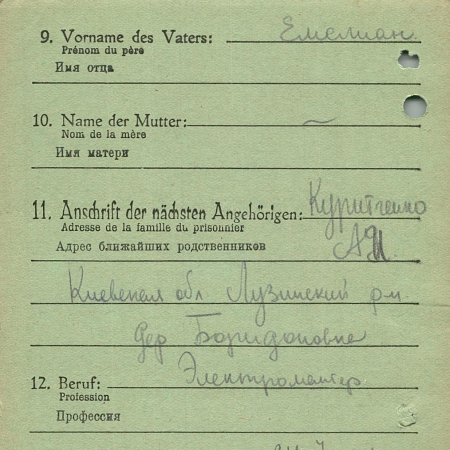 9. Vorname des Vaters: Емелиан.
Prénom du père
Имя отца
10. Name der Mutter: —
Nom de la mère
Имя матери
11. Anschrift der nächsten Angehörigen: Куритченко
Adresse de la famille du prisonnier
А.И.
Адрес ближайших родственников
Киевская обл Лузинский р-н.
дер
12. Beruf: Электромантер
Profession
Профессия